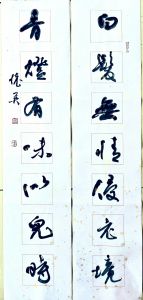 白髮無情侵老境
青燈有味似兒時